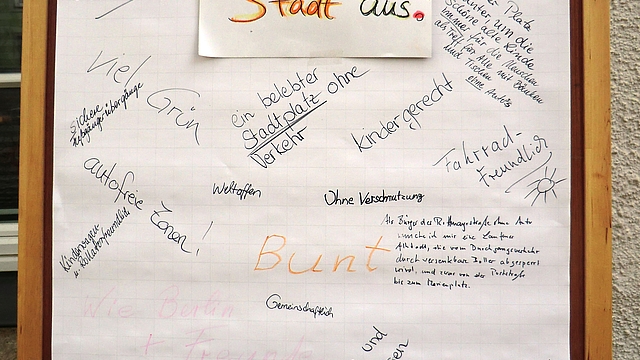 Stadt aus.
Platz
unter um die
Schöne alte Linde
immer für die Menschen
als Treff für Alle mit Bänken
und Tischen
ohne Autos
viel
Grün
sichere
Fußgängerübergänge
ein belebter
Stadtplatz ohne
Verkehr
kindergerecht
Fahrrad-
Freundlich
autofreie Zonen!
Weltoffen
Ohne Verschmutzung
Kinderwagen
u. Rollatorfreundlich
Als Bürger der ohne Auto
wünsche ich mir eine
Altstadt, die vom Durchgangsverkehr
durch versenkbare Poller abgesperrt
wird, und zwar von der Poststraße
bis zum Marienplatz.
Bunt
Gemeinschaftlich
Wie Berlin
+ Freunde
und